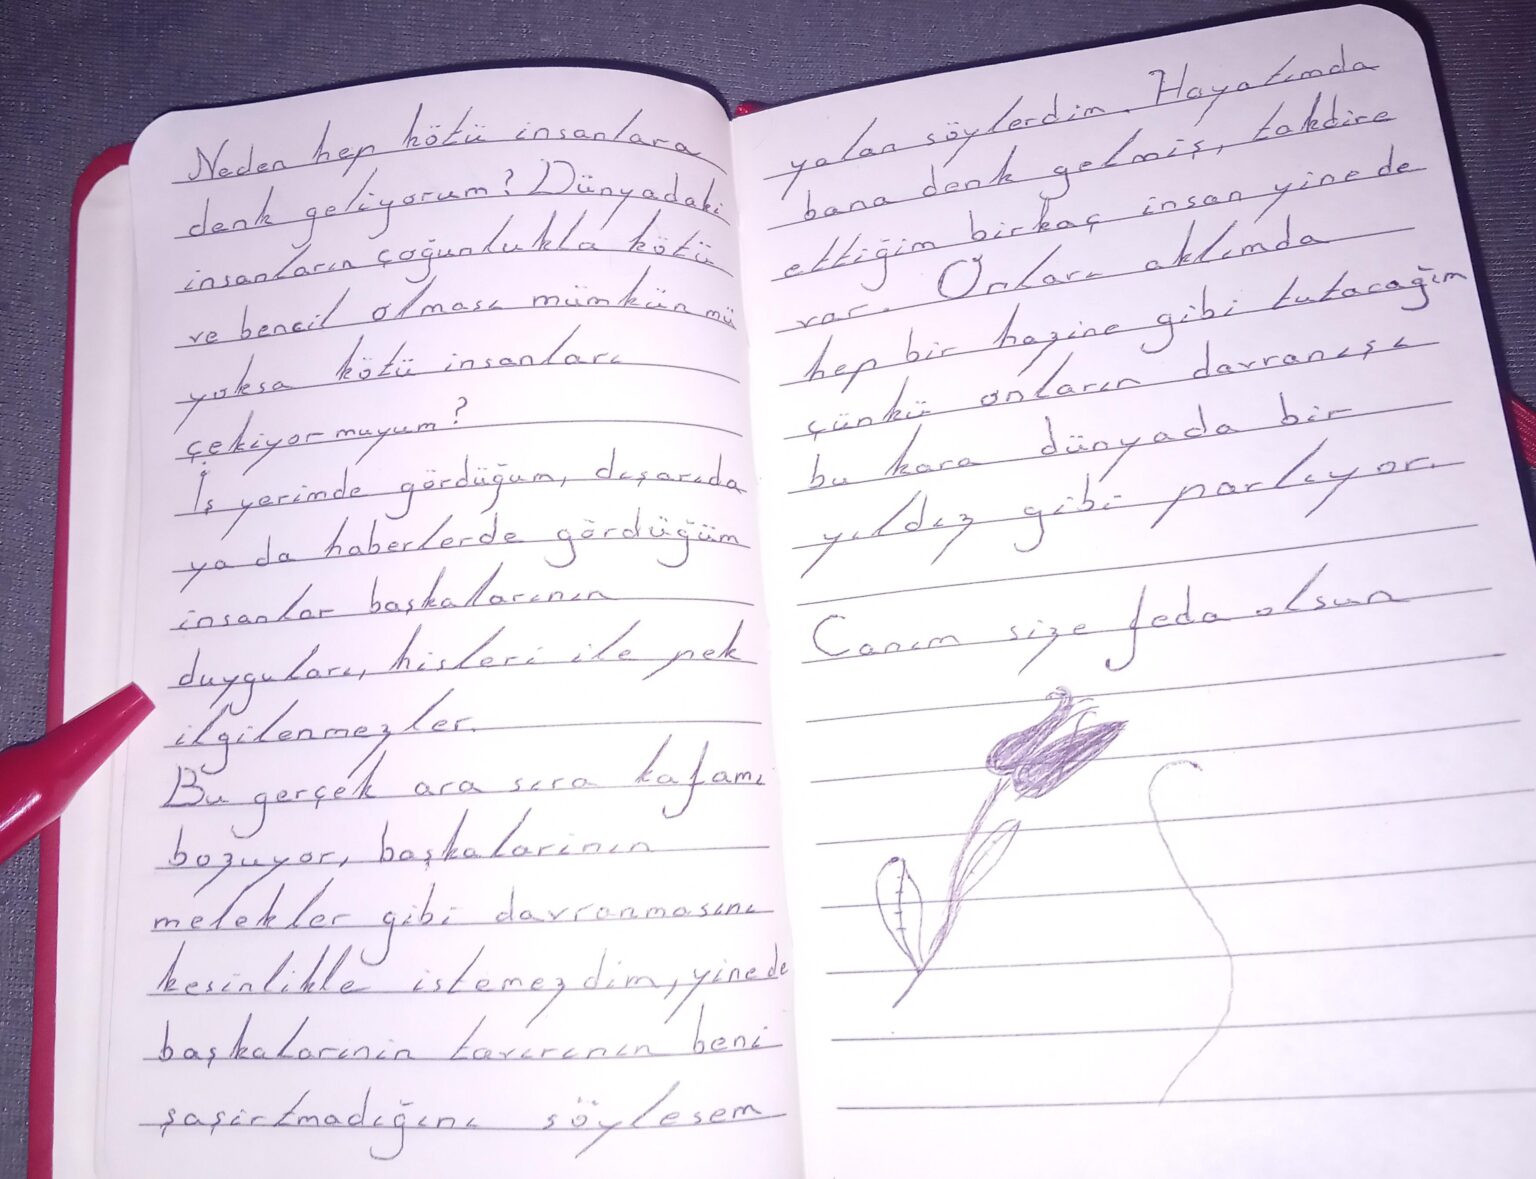 Neden hep kötü insanlara
denk geliyorum? Dünyadaki
insanların çoğunlukla kötü
ve bencil olması mümkün mü
yoksa kötü insanları
çekiyormuyum?
İş yerimde gördüğüm, dışarıda
ya da haberlerde gördüğüm
insanlar başkalarının
duyguları, hisleri ile pek
ilgilenmezler.
Bu gerçek ara sıra kafamı
bozuyor, başkalarının
melekler gibi davranmasını
kesinlikle istemezdim, yinede
başkalarının tavırının beni
şaşırtmadığını söylesem
yalan söylerdim. Hayatımda
bana denk gelmiş, takdire
ettiğim birkaç insan yinede
var. Onları aklımda
hep bir hazine gibi tutacağım
çünkü onların davranışı
bu kara dünyada bir
yıldız gibi parlıyor.
Canım size feda olsun